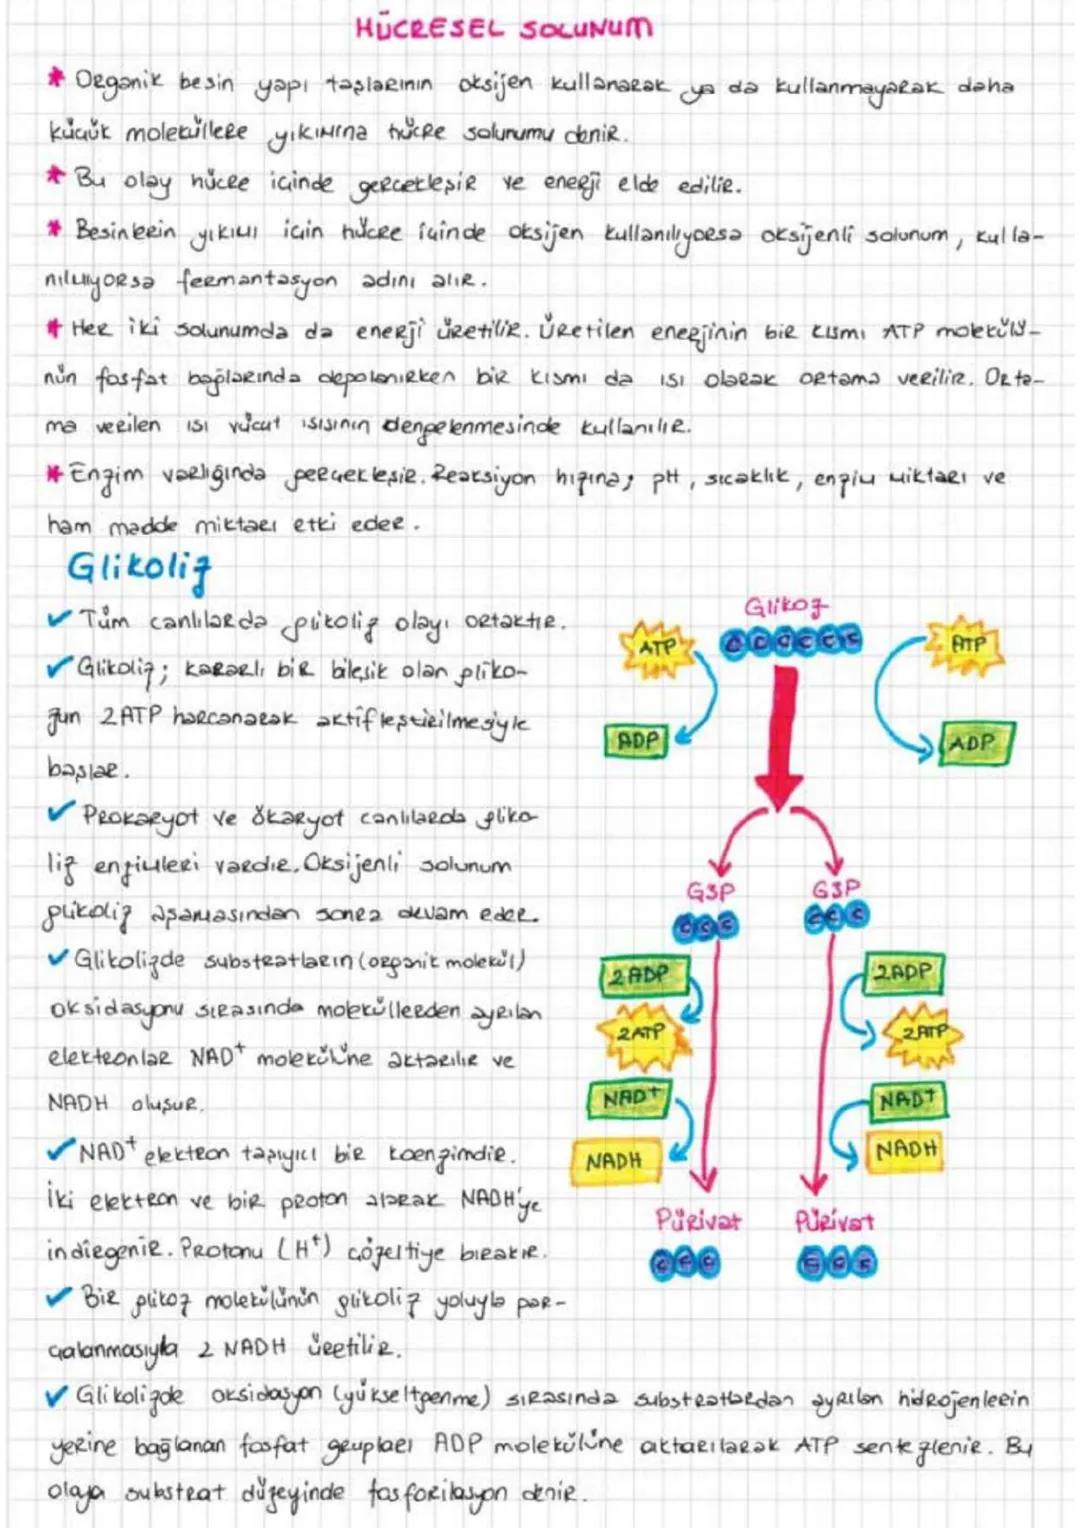 HÜCRESEL SOLUNUM
* Organik besin yapı taşlarının oksijen kullanarak ya da kullanmayarak daha
küçük moleküllere yıkımına hücre solunumu denir.
* Bu olay hücre içinde gerçekleşir ve enerji elde edilir.
* Besinlerin yıkımı için hücre içinde oksijen kullanılıyorsa oksijenli solunum, kulla-
nılmıyorsa fermantasyon adını alır.
* Her iki solunumda da enerji üretilir. Üretilen enerjinin bir kısmı ATP molekülü-
nün fosfat bağlarında depolanırken bir kısmı da ısı olarak ortama verilir. Orta-
ma verilen ısı vücut ısısının dengelenmesinde kullanılır.
* Enzim varlığında gerçekleşir. Reaksiyon hızına; pH, sıcaklık, enzim miktarı ve
ham madde miktarı etki eder.
Glikoliz
✓ Tüm canlılarda glikoliz olayı ortaktır.
✓ Glikoliz; kararlı bir bileşik olan gliko-
zun 2 ATP harcanarak aktifleştirilmesiyle
başlar.
✓ Prokaryot ve ökaryot canlılarda gliko
liz enzimleri vardır. Oksijenli solunum
glikoliz aşamasından sonra devam eder.
✓ Glikolizde substratların (organik molekül)
oksidasyonu sırasında moleküllerden ayrılan
elektronlar NAD+ molekülüne aktarılır ve
NADH oluşur.
✓ NAD+ elektron taşıyıcı bir koenzimdir.
İki elektron ve bir proton alarak NADH'ye
indirgenir. Protonu (H+) çözeltiye bırakır.
✓ Bir glikoz molekülünün glikoliz yoluyla par-
çalanmasıyla 2 NADH üretilir.
✓ Glikolizde oksidasyon (yükseltgenme) sırasında substratlardan ayrılan hidrojenlerin
yerine bağlanan fosfat grupları ADP molekülüne aktarılarak ATP sentezlenir. Bu
olaya substrat düzeyinde fosforilasyon denir.
Glikoz
ATP
C C C C C C
ATP
ADP
ADP
G3P
G3P
C C C
C C C
2ADP
2ADP
2ATP
2ATP
NAD+
NAD+
NADH
NADH
Pürivat
Pürivat
C C C
C C C